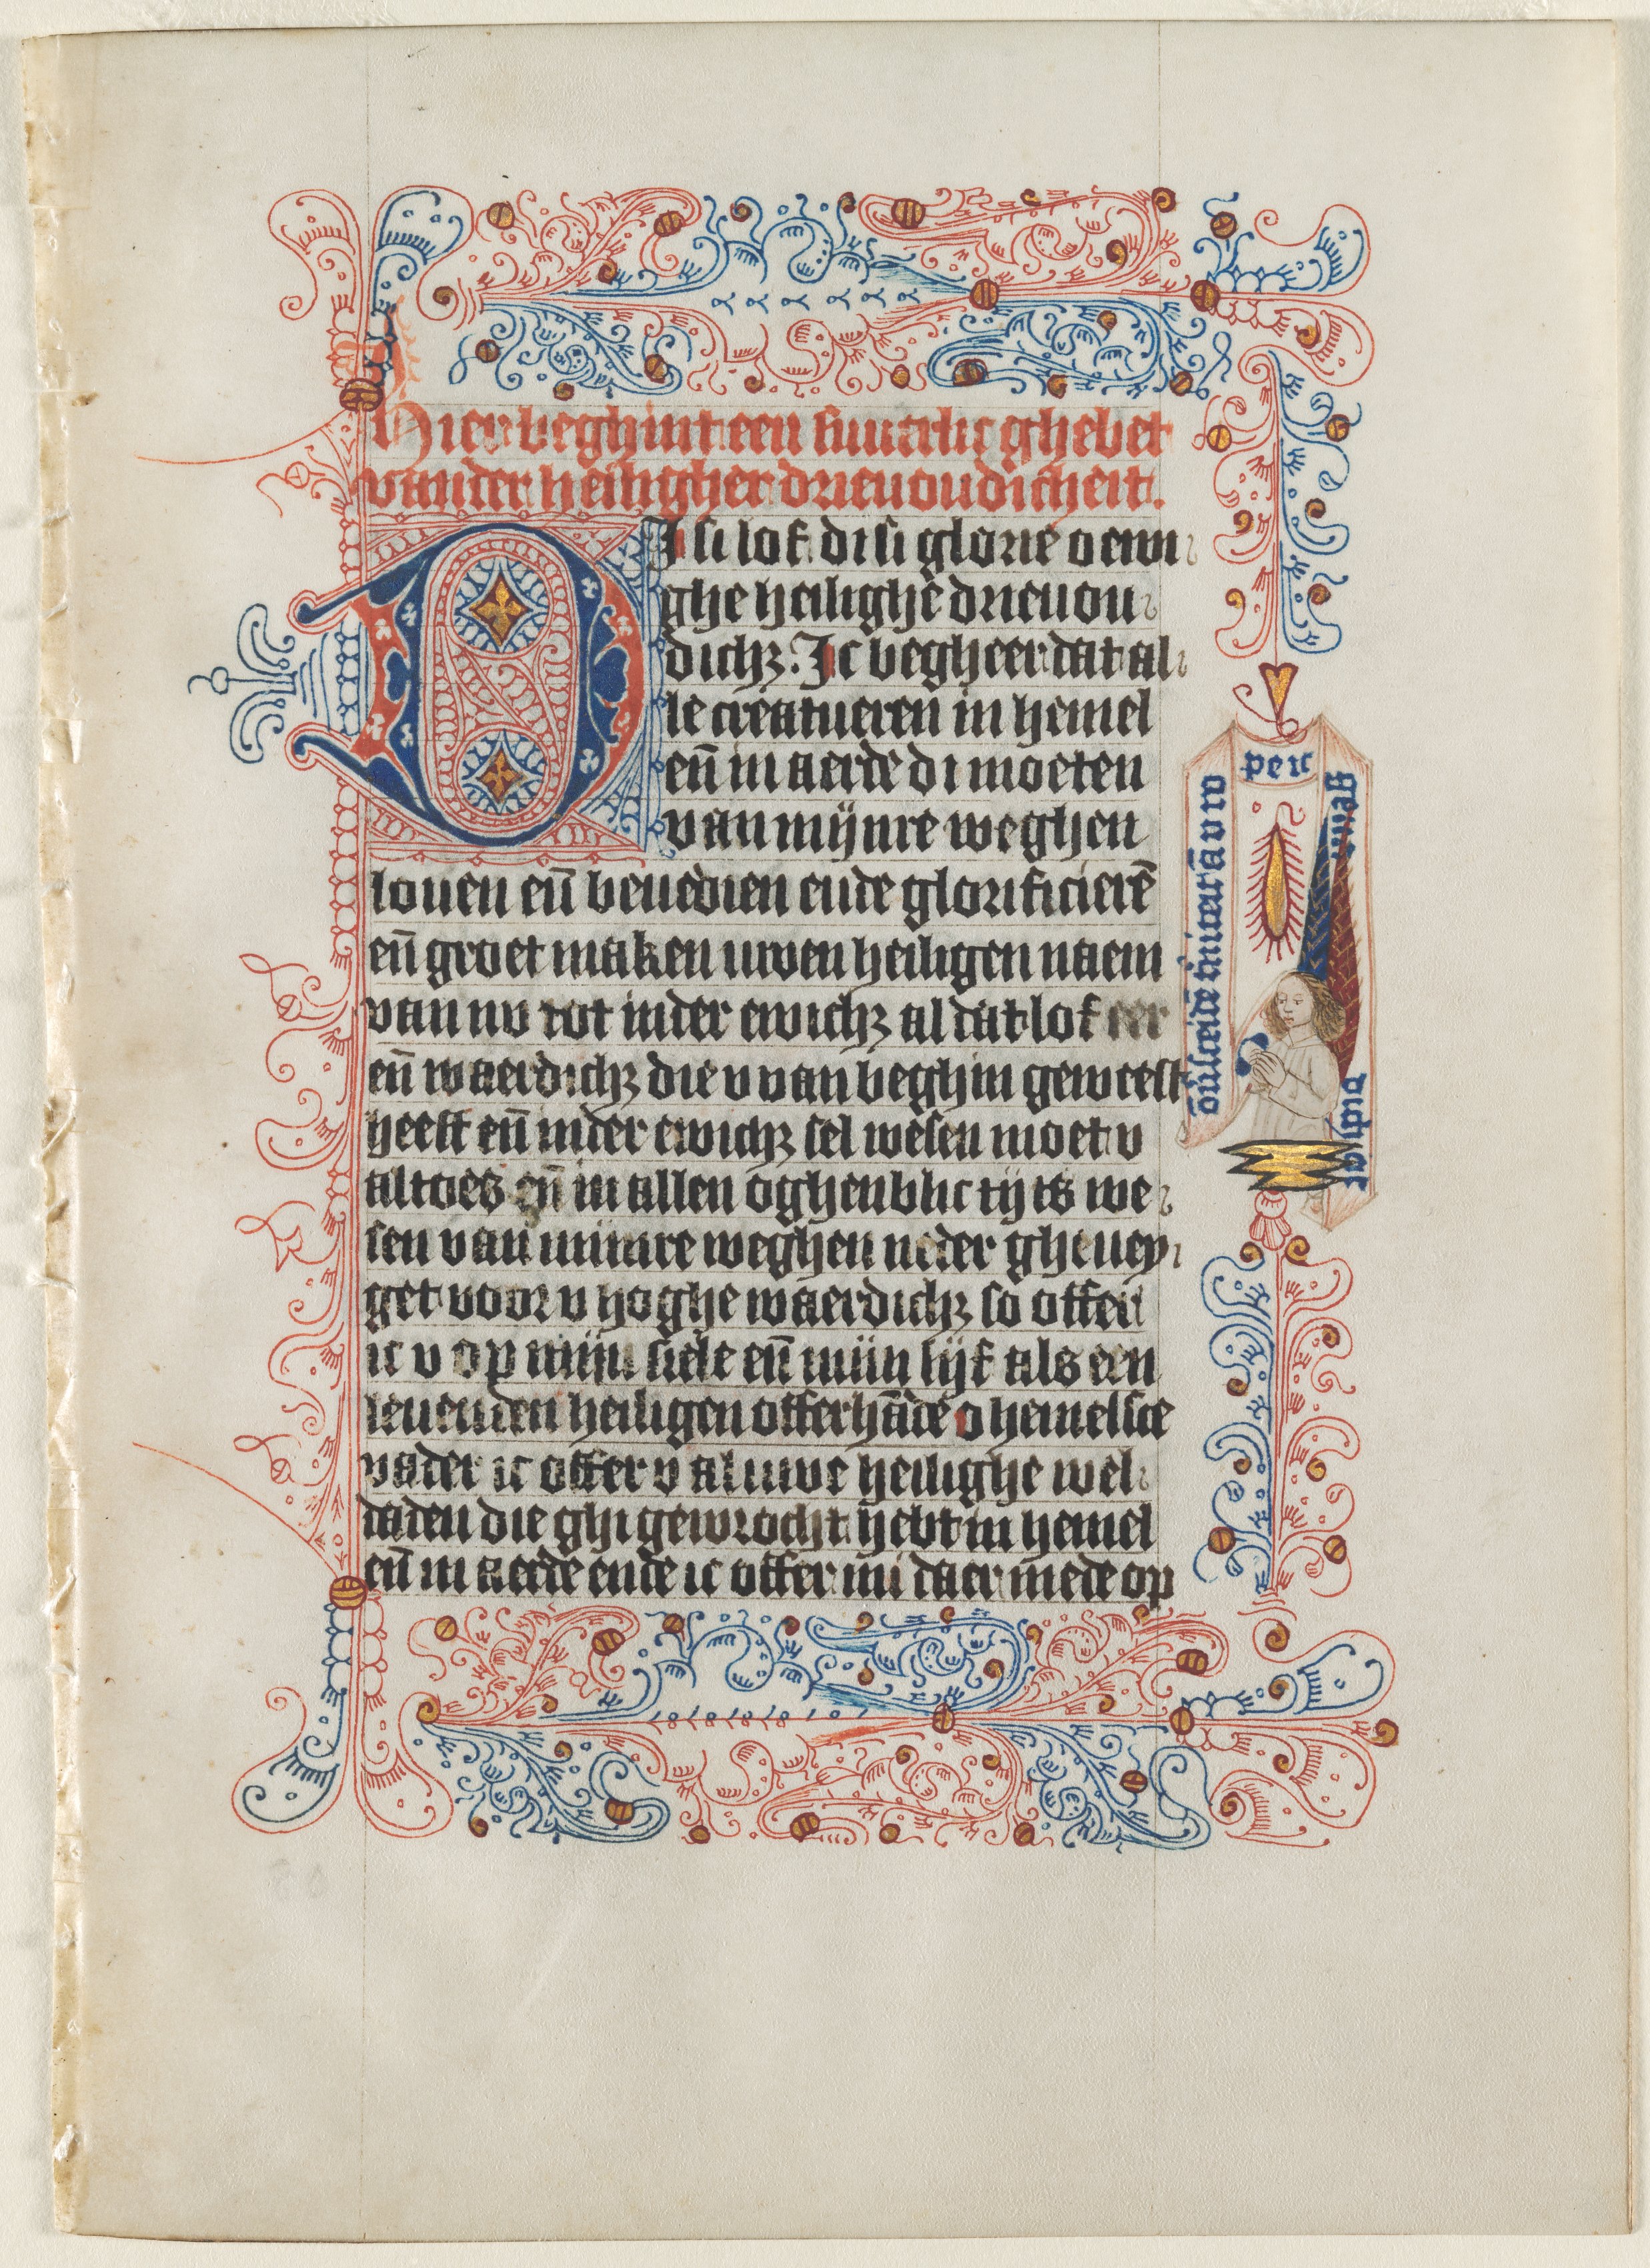 Hier beghint een suuerlic ghebet
vander heiligher drieuoudicheit.
DI si lof di si glorie o ewi
ghe heilighe drieuou
dichꝫ. Ic begheer dat al
le creatueren in hemel
en̄ in aerde di moeten
van mijnre weghen
louen en̄ benedien ende glorificierē
en̄ groet maken uwen heiligen naem
van nv tot inder ewichꝫ al dat lof eer
en̄ waerdichꝫ die v van beghin geweest
heeft en̄ inder ewichꝫ sel wesen moet v
altoes en̄ in allen oghenblic tijts we
sen van mijnre weghen neder gheney
get voor v hoghe waerdichꝫ so offer
ic v op mijn siele en̄ mijn lijf als een
leuenden heiligen offerhāde o hemelsce
vader ic offer v al uwe heilighe wel
daden die ghi gewrocht hebt in hemel
en̄ in aerde ende ic offer mi daer mede op
per